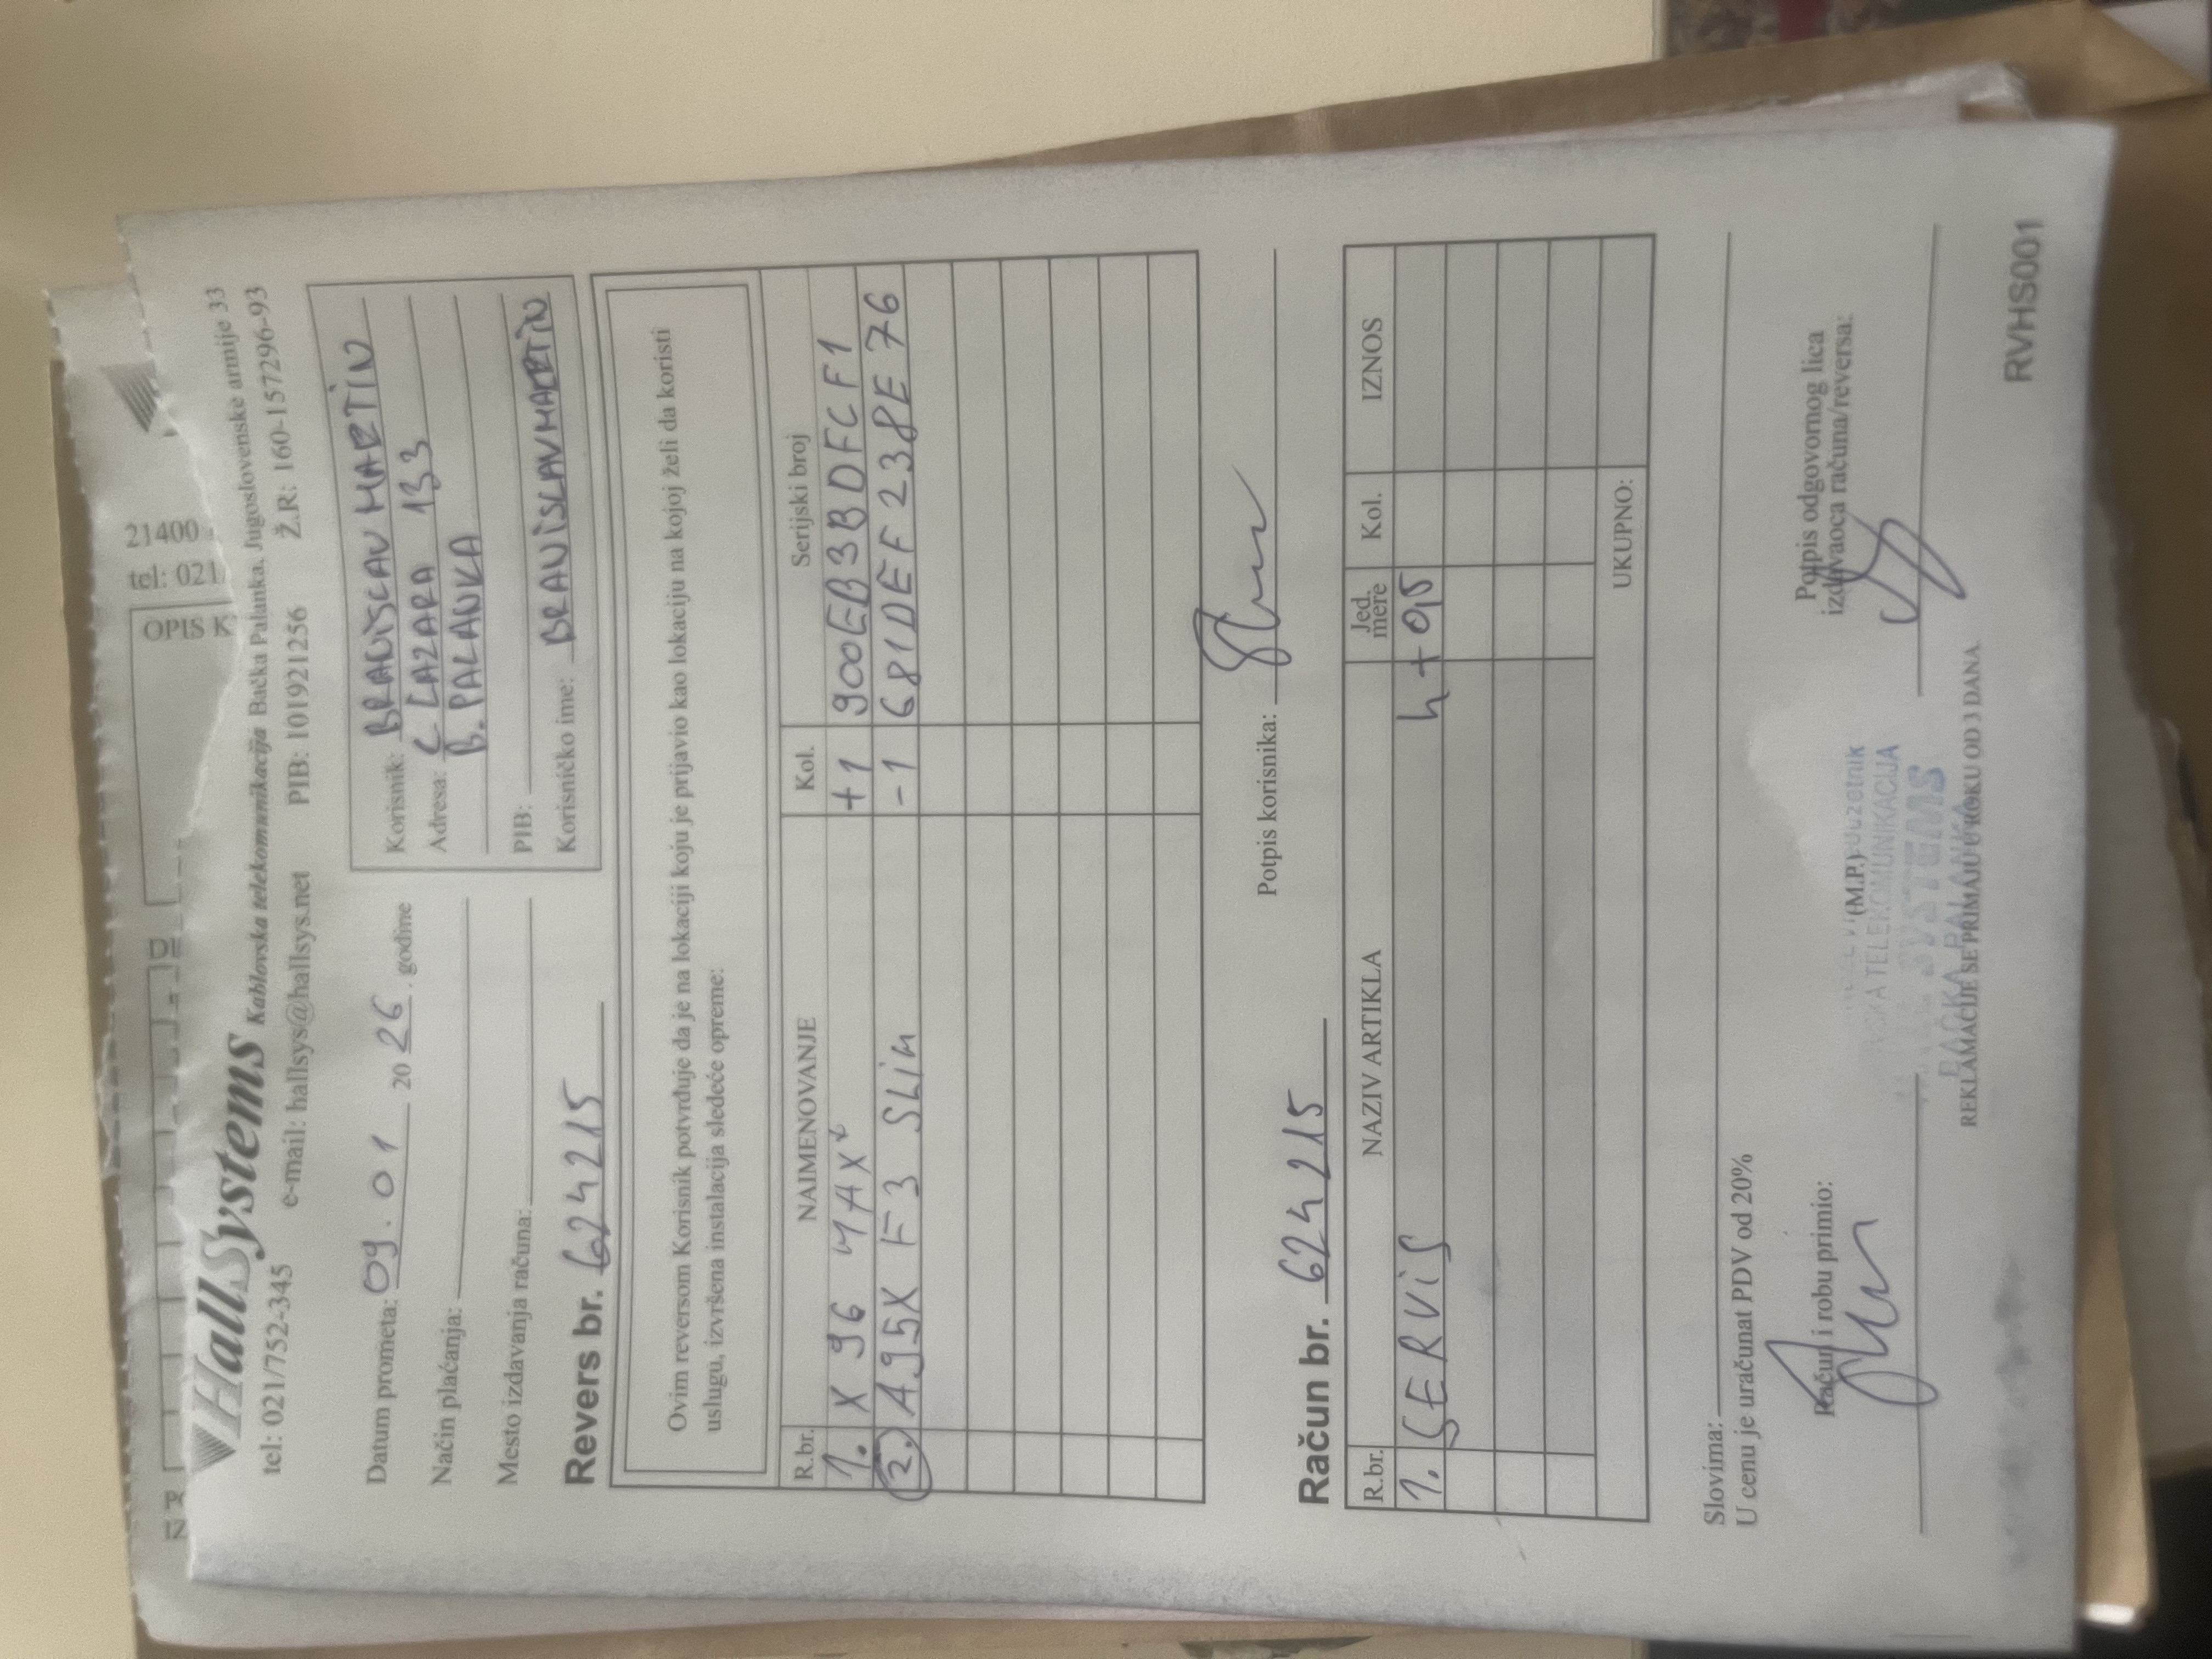 21400
tel: 021
OPIS K
HallSystems Kablovska telekomunikacija Bačka Palanka, Jugoslovenske armije 33
tel: 021/752-345 e-mail: hallsys@hallsys.net PIB: 101921256 Ž.R: 160-157296-93
Datum prometa: 09.01 2026. godine
Način plaćanja:
Mesto izdavanja računa:
Korisnik: BRANISLAV MARTIN
Adresa: C LAZARA 133
B. PALANKA
PIB:
Korisničko ime: BRANISLAVMARTIN
Revers br. 624215
Ovim reversom Korisnik potvrđuje da je na lokaciji koju je prijavio kao lokaciju na kojoj želi da koristi
uslugu, izvršena instalacija sledeće opreme:
R.br. NAIMENOVANJE Kol. Serijski broj
1. X96 MAX+ +1 900EB3BDFCF1
2. A95X F3 SLIM -1 681DEF238E76
Potpis korisnika:
Račun br. 624215
R.br. NAZIV ARTIKLA Jed. mere Kol. IZNOS
1. SERVIS h + 0,5
UKUPNO:
Slovima:
U cenu je uračunat PDV od 20%
Račun i robu primio:
(M.P.)
Potpis odgovornog lica
izdavaoca računa/reversa:
TELEKOMUNIKACIJA
BAČKA PALANKA
REKLAMACIJE SE PRIMAJU U ROKU OD 3 DANA
RVHS001